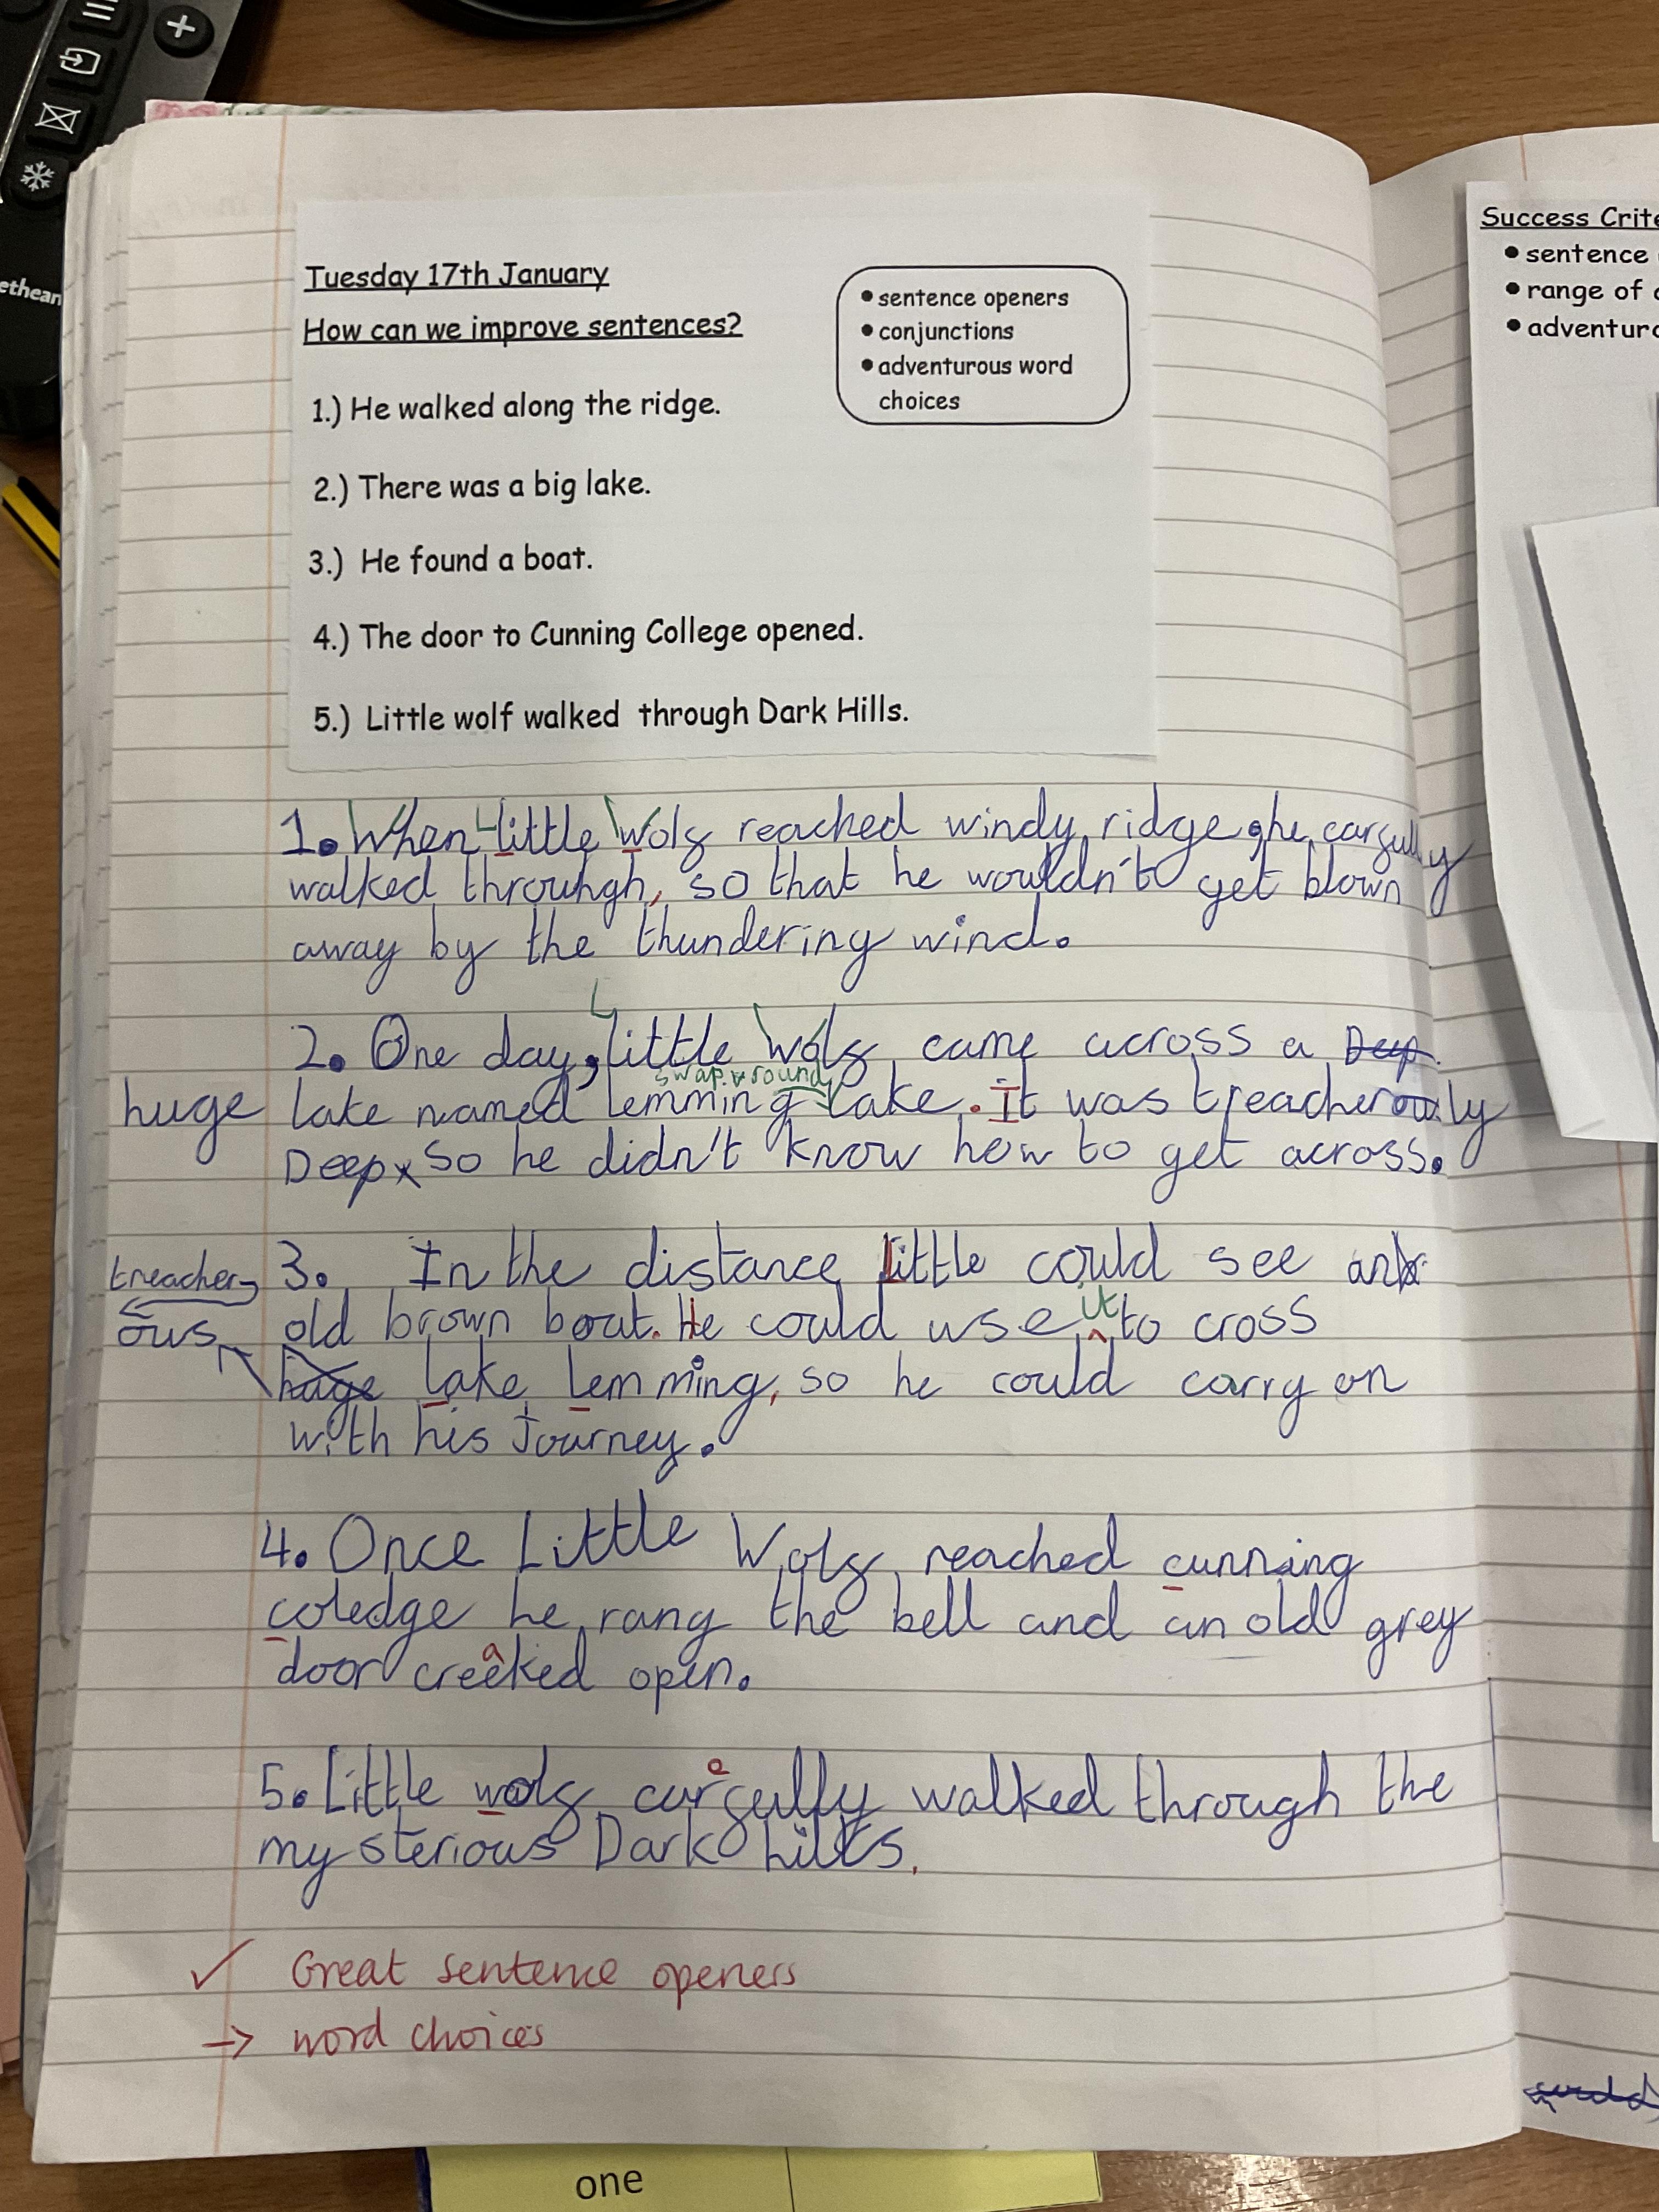 ethean
Tuesday 17th January
How can we improve sentences?
• sentence openers
• conjunctions
• adventurous word
choices
1.) He walked along the ridge.
2.) There was a big lake.
3.) He found a boat.
4.) The door to Cunning College opened.
5.) Little wolf walked through Dark Hills.
1. When Little Wolf reached windy ridge, he carfully
walked throuhgh, so that he wouldn't get blown
away by the thundering wind.
2. One day, Little Wolf came across a Deep
huge lake named lemming lake. It was treacherously
swap around
Deep so he didn't know how to get across.
3. In the distance Little could see an
old brown boat. He could use it to cross
treacherous
huge lake Lemming, so he could carry on
with his Journey.
4. Once Little Wolf reached cunning
coledge he rang the bell and an old grey
door creaked open.
5. Little wolf carefully walked through the
mysterious Dark hills.
✓ Great sentence openers
→ word choices
Success Crite
• sentence
• range of
• adventuro
one